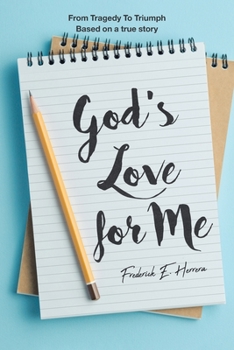 From Tragedy To Triumph
Based on a true story
God's
Love
for Me
Frederick E. Herrera